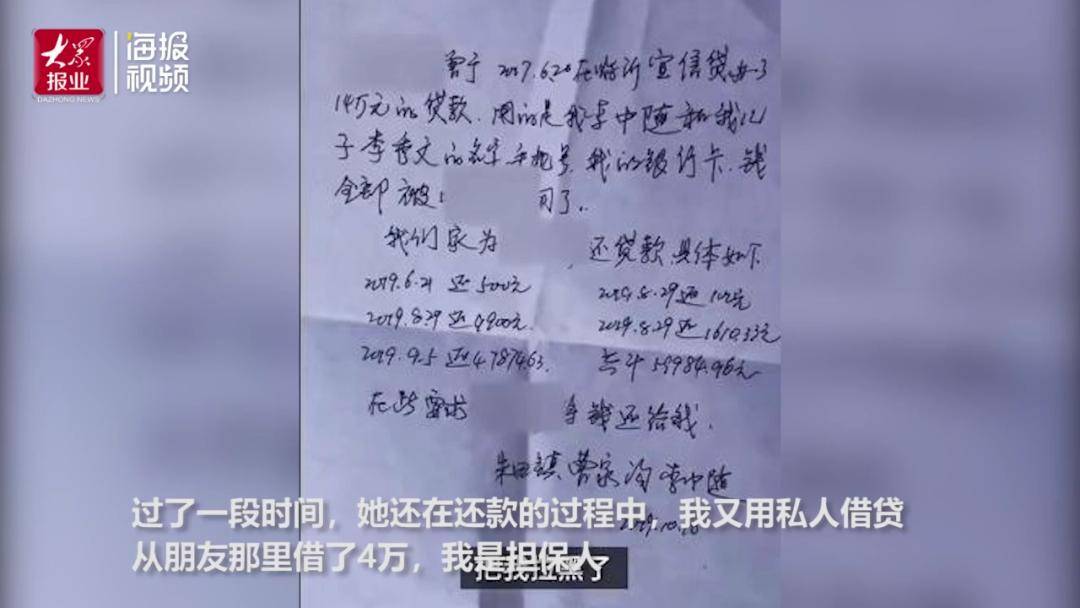 大众
报业
DAZHONG NEWS
海报
视频
曾于2017.6.20在临沂宜信贷
14万元的贷款.用的是我李中随和我儿
子李秀文的名字手机号.我的银行卡.钱
全部被 司了.
我们家为 还贷款具体如下
2019.6.21 还5000元 2019.8.29还102元
2019.8.29还 900元. 2019.8.29还1610.33元
2019.9.5还47874.63. 共计 59984.96元
在此要求 钱还给我.
朱田镇曹家沟李中随
2019.10.
过了一段时间,她还在还款的过程中,我又用私人借贷
从朋友那里借了4万,我是担保人
把我拉黑了